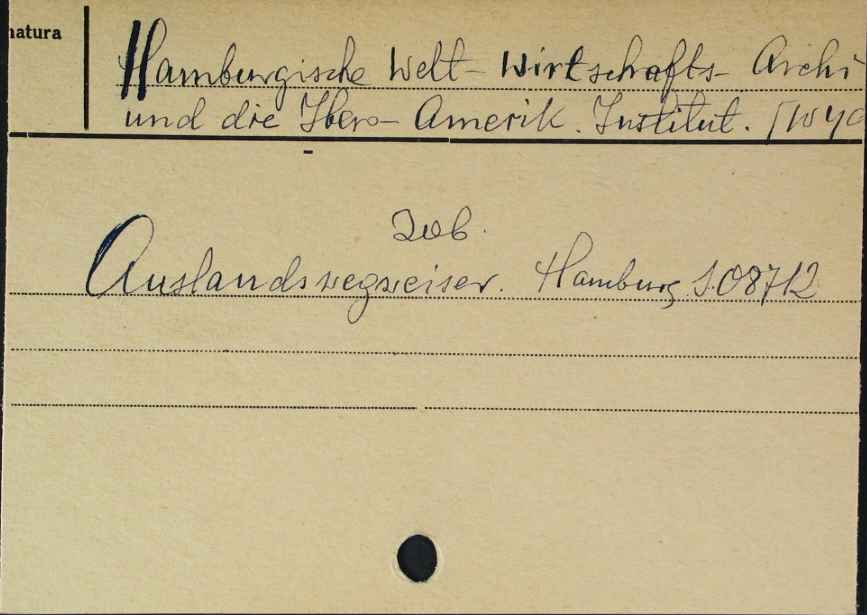 natura
Hamburgische Welt-Wirtschafts-Archi
und die Ibero-Amerik. Institut.
Zob.
Auslandswegweiser. Hamburg S.08712